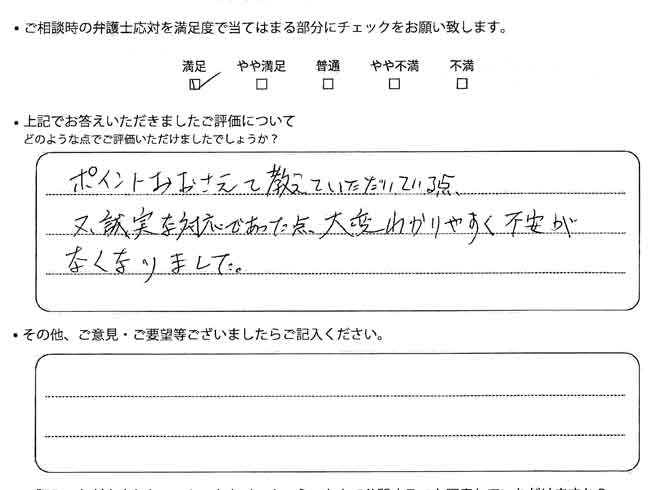 ・ご相談時の弁護士応対を満足度で当てはまる部分にチェックをお願い致します。
満足 やや満足 普通 やや不満 不満
・上記でお答えいただきましたご評価について
どのような点でご評価いただけましたでしょうか?
ポイントおおさえて教えていただいている点、
又、誠実な対応であった点、大変わかりやすく不安が
なくなりました。
・その他、ご意見・ご要望等ございましたらご記入ください。